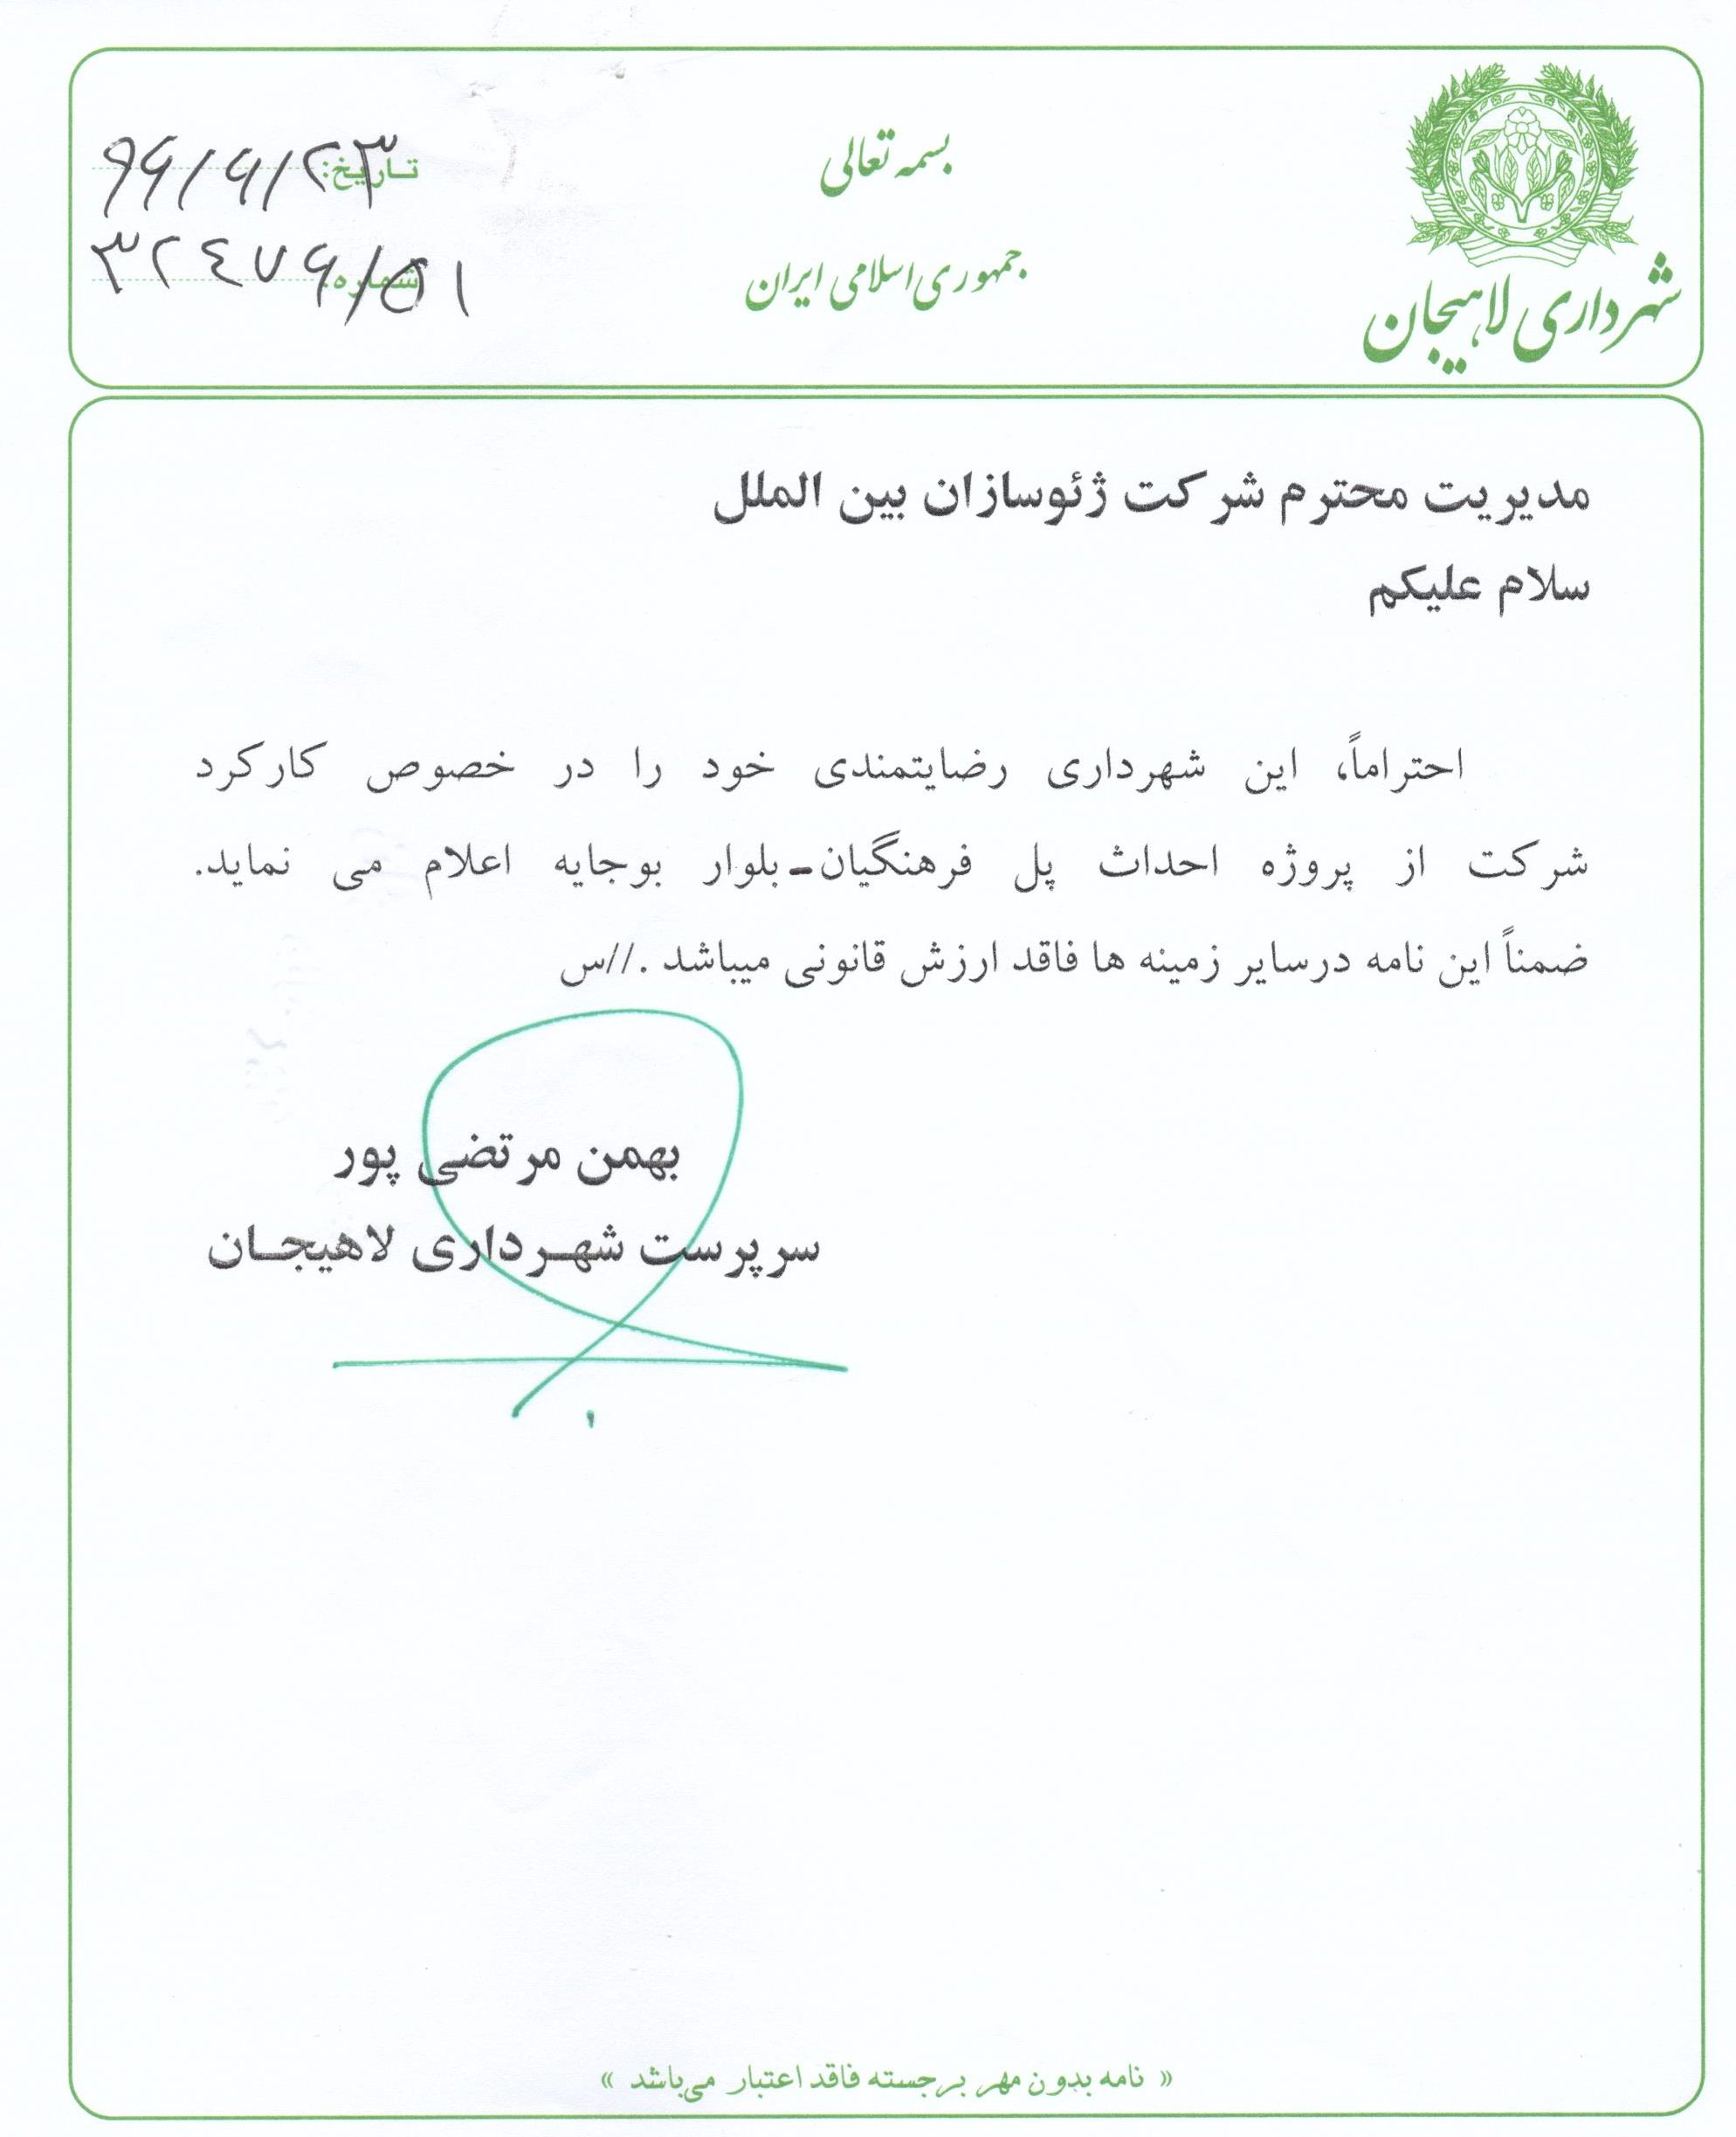 بسمه تعالی
جمهوری اسلامی ایران
شهرداری لاهیجان
تاریخ: ۹۶/۶/۲۳
شماره: ۳۲۴۷۶/۵۱
مدیریت محترم شرکت ژئوسازان بین الملل
سلام علیکم
احتراماً، این شهرداری رضایتمندی خود را در خصوص کارکرد
شرکت از پروژه احداث پل فرهنگیان-بلوار بوجایه اعلام می نماید.
ضمناً این نامه درسایر زمینه ها فاقد ارزش قانونی میباشد .//س
بهمن مرتضی پور
سرپرست شهرداری لاهیجان
« نامه بدون مهر برجسته فاقد اعتبار می‌باشد »